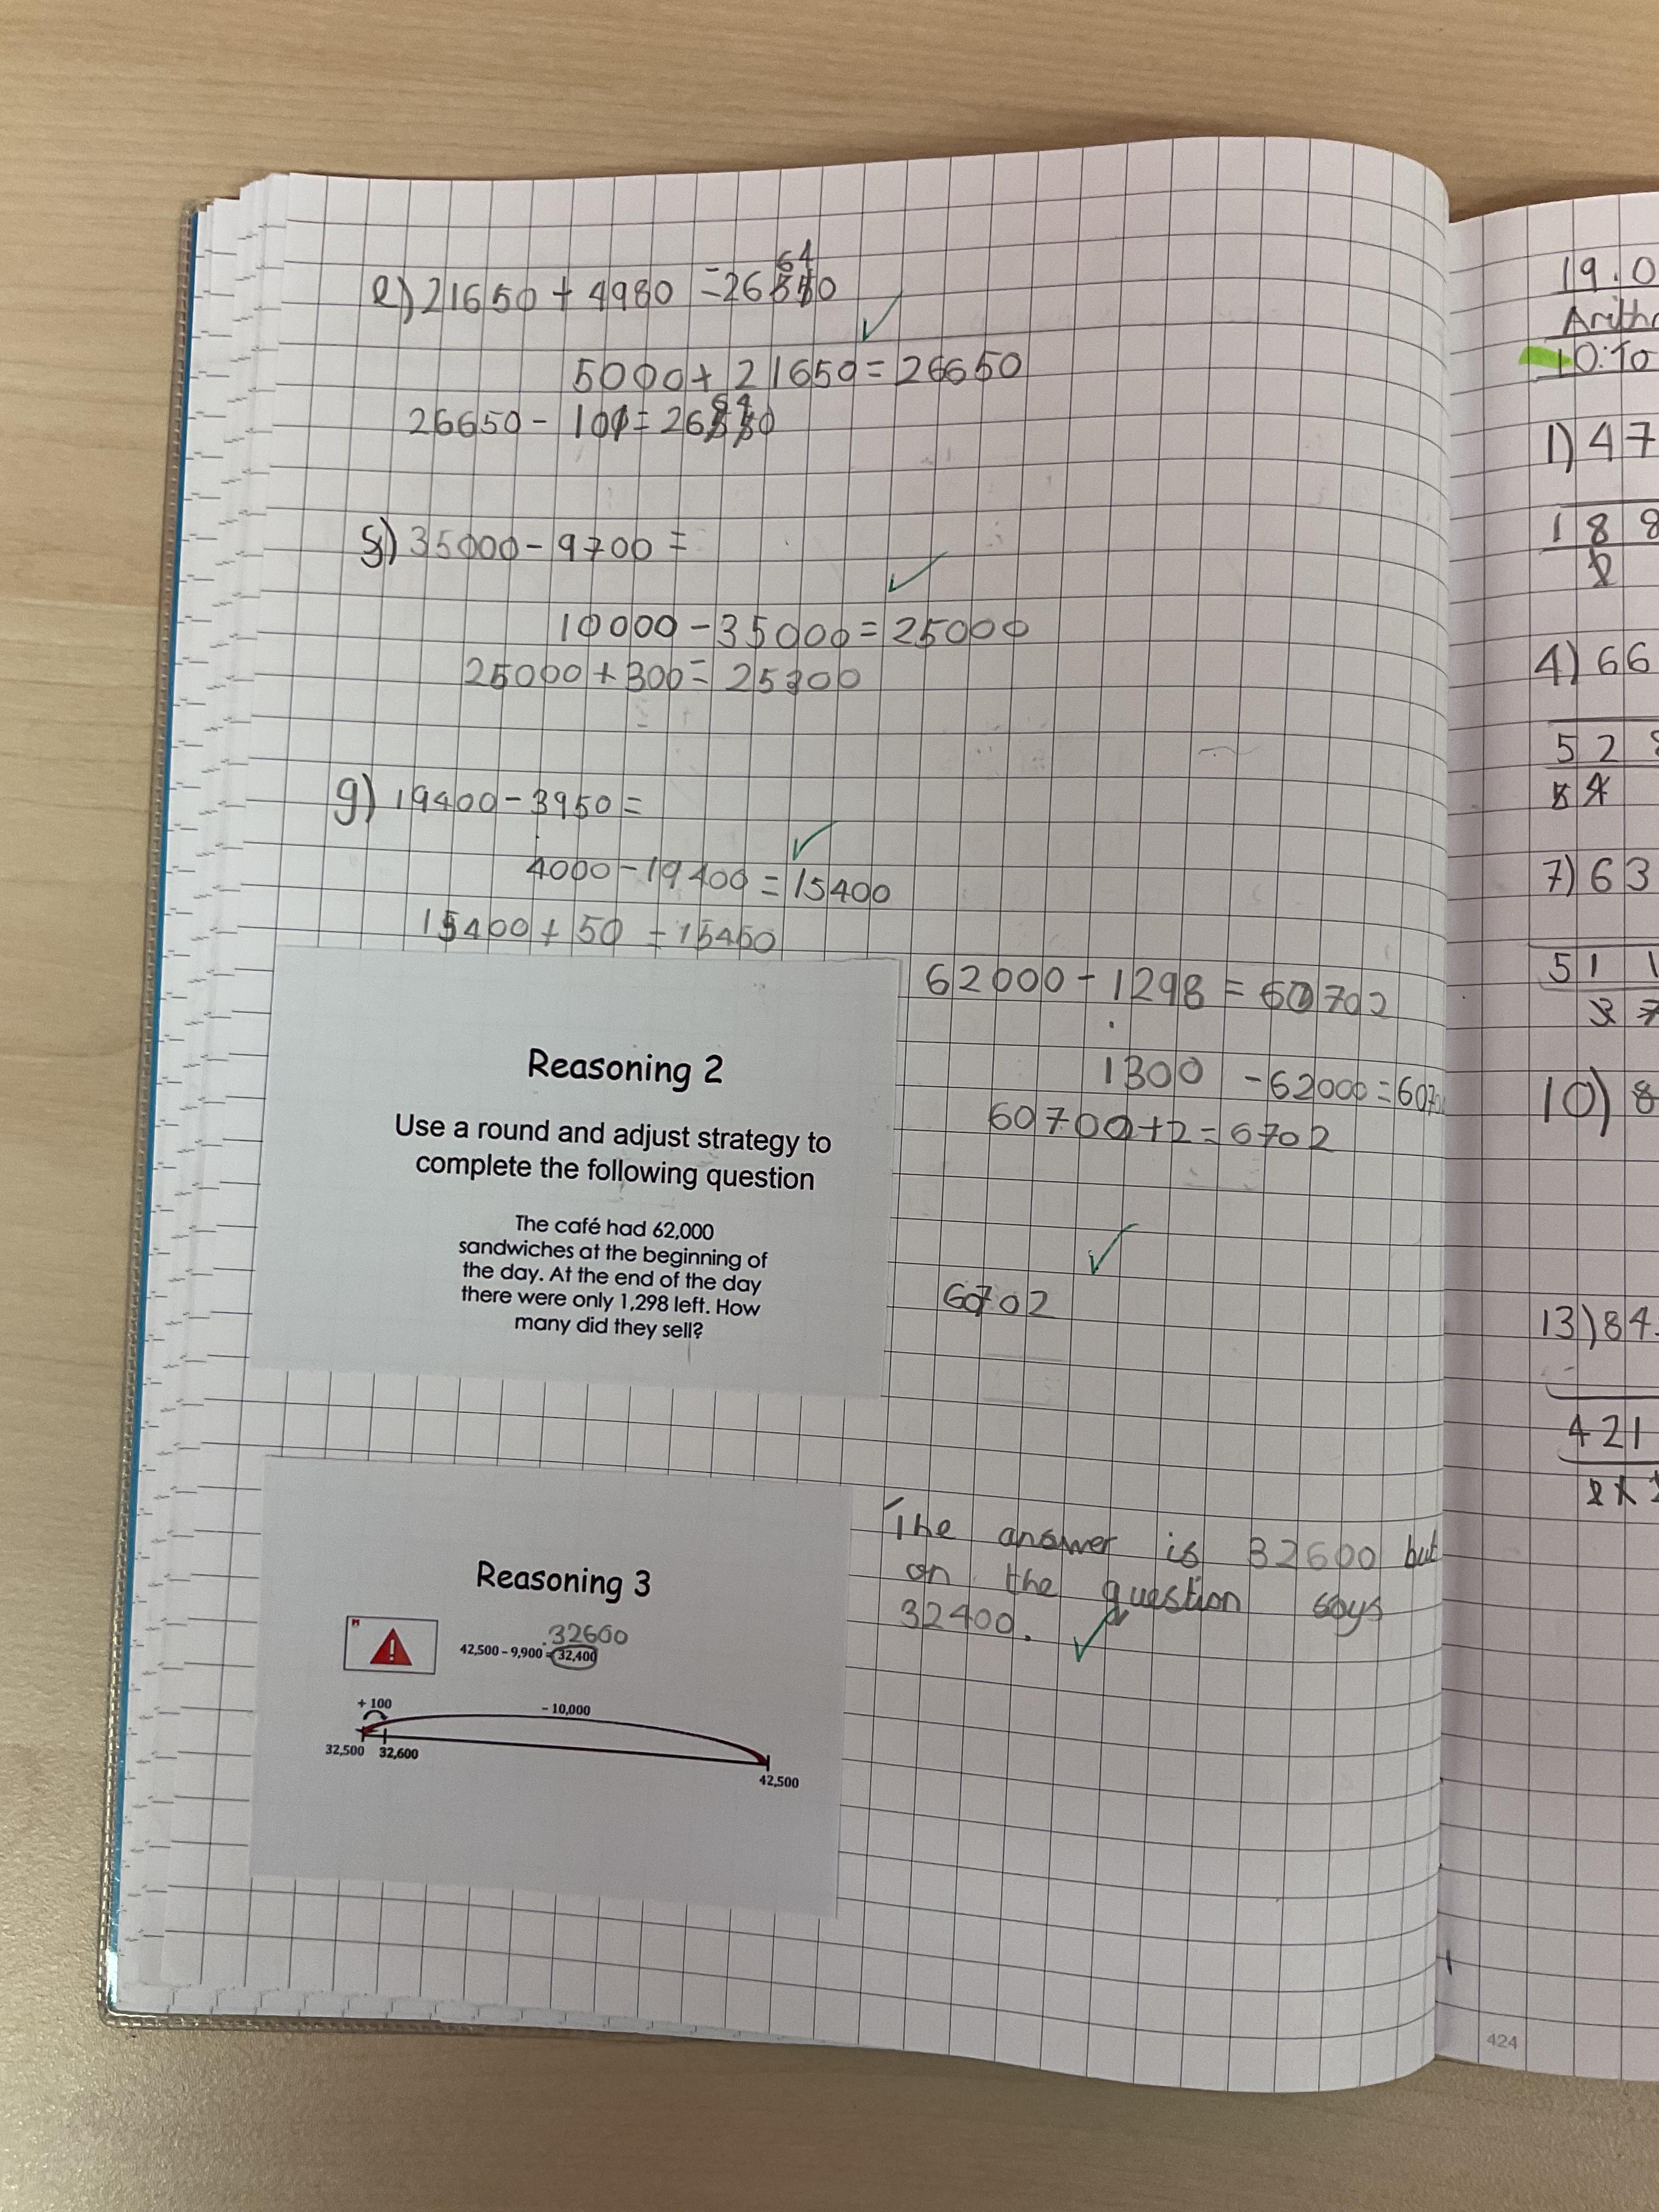 e) 21650 + 4980 = 26640
5000 + 21650 = 26650
26650 - 10 = 26640
f) 35000 - 9700 =
10000 - 35000 = 25000
25000 + 300 = 25300
g) 19400 - 3950 =
4000 - 19400 = 15400
15400 + 50 = 15450
62000 - 1298 = 60702
1300 - 62000 = 6070
60700 + 2 = 6702
60702
Reasoning 2
Use a round and adjust strategy to
complete the following question
The café had 62,000
sandwiches at the beginning of
the day. At the end of the day
there were only 1,298 left. How
many did they sell?
Reasoning 3
32600
42,500 – 9,900 = 32,400
+ 100
– 10,000
32,500 32,600
42,500
The answer is 32600 but
on the question says
32400.
19.0
Arith
10:10
1) 47
188
4) 66
52
7) 63
51 1
10) 8
13) 84
421
424